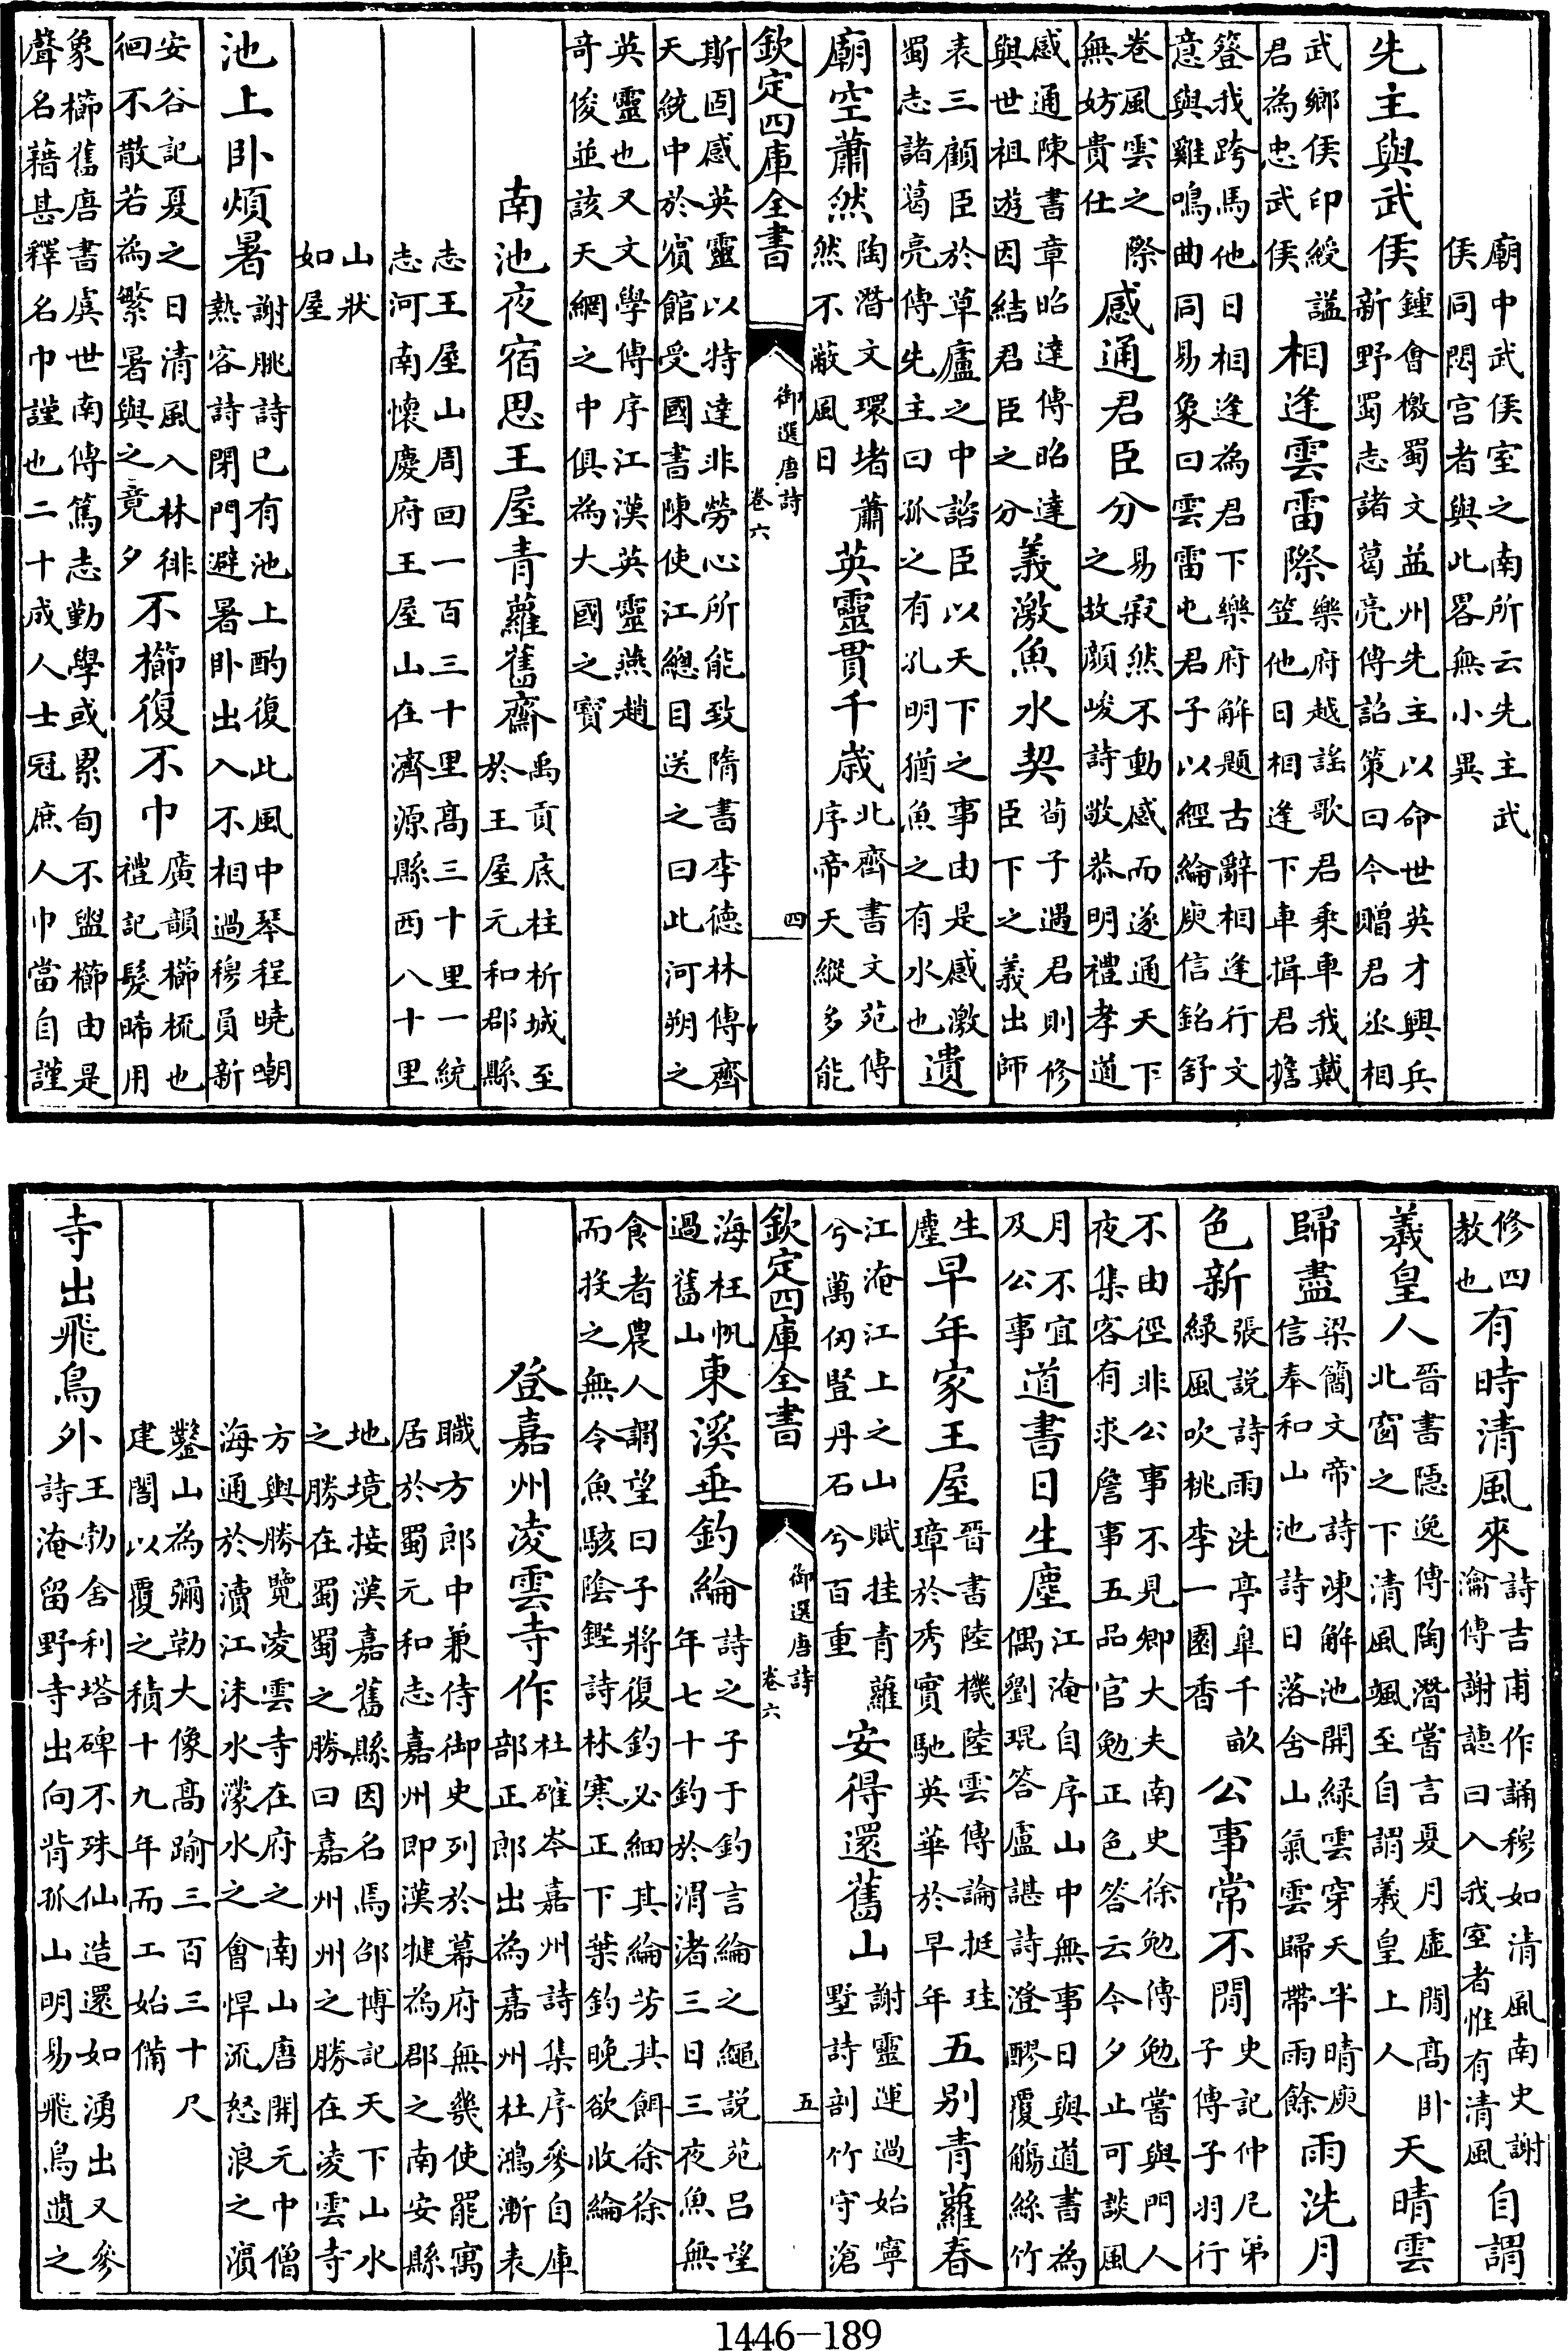 廟中武侯室之南所云先主武侯同閟宫者與此畧無小異
先主與武侯鍾會檄蜀文益州先主以命世英才興兵新野蜀志諸葛亮傳詔策曰今贈君丞相
武鄉侯印綬謚君為忠武侯相逢雲雷際樂府越謡歌君乘車我戴笠他日相逢下車揖君擔
簦我跨馬他日相逢為君下樂府解題古辭相逢行文意與雞鳴曲同易象曰雲雷屯君子以經綸庾信銘舒
卷風雲之際無妨貴仕感通君臣分易寂然不動感而遂通天下之故顔峻詩敬恭明禮孝道
感通陳書章昭達傳昭達與世祖遊因結君臣之分義激魚水契荀子遇君則修臣下之義出師
表三顧臣於草廬之中諮臣以天下之事由是感激蜀志諸葛亮傳先主曰孤之有孔明猶魚之有水也遺
廟空蕭然陶潛文環堵蕭然不蔽風日英靈貫千歳北齊書文苑傳序帝天縱多能
欽定四庫全書 御選唐詩 卷六 四
斯固感英靈以特達非勞心所能致隋書李德林傳齊天統中於濱館受國書陳使江總目送之曰此河朔之
英靈也又文學傳序江漢英靈燕趙竒俊並該天網之中俱為大國之寳
南池夜宿思王屋青蘿舊齋禹貢底柱析城至於王屋元和郡縣
志王屋山周回一百三十里髙三十里一統志河南懷慶府王屋山在濟源縣西八十里
山狀如屋
池上卧煩暑謝朓詩已有池上酌復此風中琴程曉嘲熱客詩閉門避暑卧出入不相過穆員新
安谷記夏之日清風入林徘徊不散若為繁暑與之竟夕不櫛復不巾廣韻櫛梳也禮記髮晞用
象櫛舊唐書虞世南傳篤志勤學或累旬不盥櫛由是聲名藉甚釋名巾謹也二十成人士冠庶人巾當自謹
修四教也有時清風來詩吉甫作誦穆如清風南史謝瀹傳謝譓曰入我室者惟有清風自謂
羲皇人晉書隠逸傳陶潛嘗言夏月虚閒髙卧北窗之下清風颯至自謂羲皇上人天晴雲
歸盡梁簡文帝詩凍解池開緑雲穿天半晴庾信奉和山池詩日落舍山氣雲歸帶雨餘雨洗月
色新張説詩雨洗亭臯千畝緑風吹桃李一園香公事常不閒史記仲尼弟子傳子羽行
不由徑非公事不見卿大夫南史徐勉傳勉嘗與門人夜集客有求詹事五品官勉正色答云今夕止可談風
月不宜及公事道書日生塵江淹自序山中無事日與道書為偶劉琨答盧諶詩澄醪覆觴絲竹
生塵早年家王屋晉書陸機陸雲傳論挺珪璋於秀實馳英華於早年五别青蘿春
江淹江上之山賦挂青蘿兮萬仞豎丹石兮百重安得還舊山謝靈運過始寧墅詩剖竹守滄
欽定四庫全書 御選唐詩 卷六 五
海枉帆過舊山東溪垂釣綸詩之子于釣言綸之繩説苑吕望年七十釣於渭渚三日三夜魚無
食者農人謂望曰子將復釣必細其綸芳其餌徐徐而投之無令魚駭陰鏗詩林寒正下葉釣晚欲收綸
登嘉州凌雲寺作杜確岑嘉州詩集序參自庫部正郎出為嘉州杜鴻漸表
職方郎中兼侍御史列於幕府無幾使罷寓居於蜀元和志嘉州即漢犍為郡之南安縣
地境接漢嘉舊縣因名焉邵博記天下山水之勝在蜀蜀之勝曰嘉州州之勝在凌雲寺
方輿勝覽凌雲寺在府之南山唐開元中僧海通於瀆江沫水濛水之會悍流怒浪之濱
鑿山為彌勒大像髙踰三百三十尺建閣以覆之積十九年而工始備
寺出飛鳥外王勃舍利塔碑不殊仙造還如湧出又參詩淹留野寺出向背孤山明易飛鳥遺之
1446-189